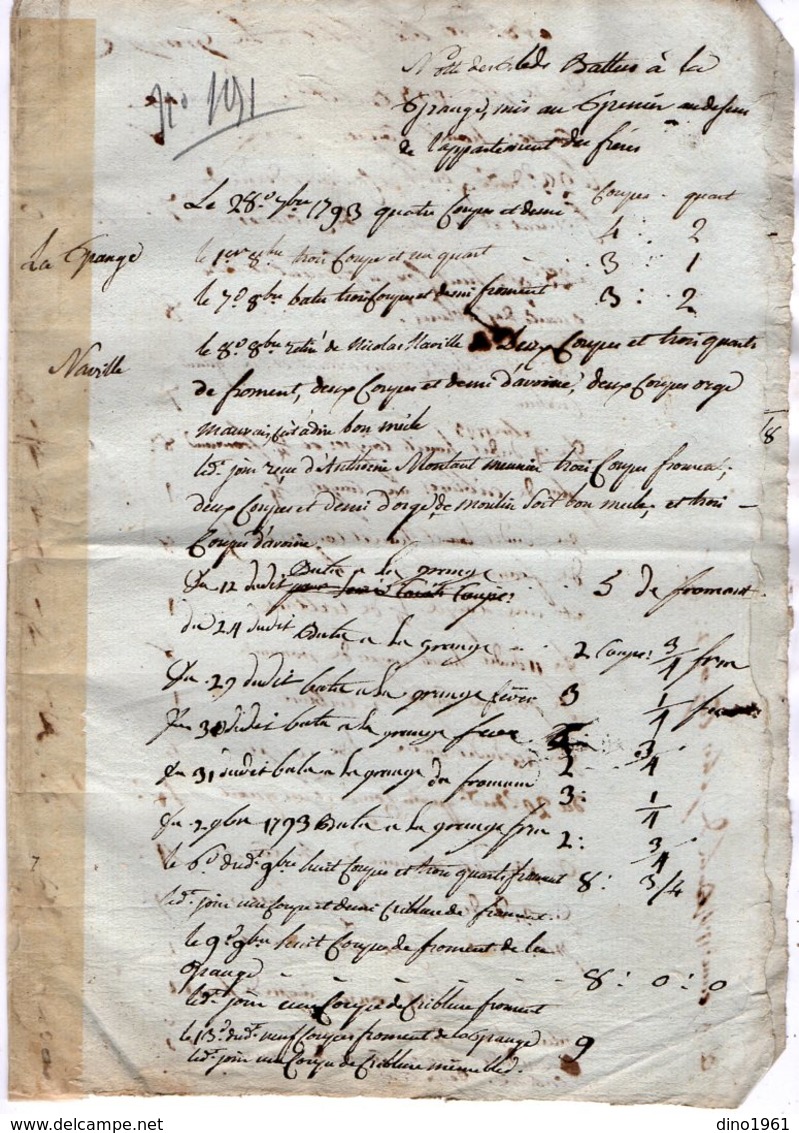 No 191
Notte des bleds Battus à la
Grange, mis au Grenier au dessus
de l'appartement des frères
Coupes - quart
Le 28.e 7bre 1793 quatre Coupes et demi 4 : 2
La Grange
le 1er 8bre trois Coupes et un quart 3 : 1
le 7e 8bre batu trois Coupes et demi froment 3 : 2
Naville
le 8e 8bre retiré de Nicolas Naville Deux Coupes et trois quarts
de froment, deux Coupes et demi d'avoine, deux Coupes orge
mauvais, c'est à dire bon mêlé
8
led.t jour reçu d'Anthoine Montant meunier trois Coupes froment,
deux Coupes et demi d'orge, de moulin soit bon mele, et trois
Coupes d'avoine.
Du 12 dudit Batu a la grange 5 de froment
du 24 dudit Batu a la grange 2 Coupes 3/4 from
Du 29 dudit batu a la grange 3 1/4
Du 30 dudit batu a la grange 2 3/4
Du 31 dudit batu a la grange du fromant 3 : 1/4
Du 2 9bre 1793 Batu a la grange from 2 : 3/4
le 6e dud.t 9bre huit Coupes et trois quarts froment 8 : 3/4
led.t jour une Coupe et demi Criblure de froment.
le 9e 9bre huit Coupes de froment de la
Grange - - - - - 8 : 0 : 0
led.t jour une Coupe de Criblure froment
le 13e dud.t neuf Coupes froment de la Grange 9
led.t jour une Coupe de Criblure meme bled.
dino1961